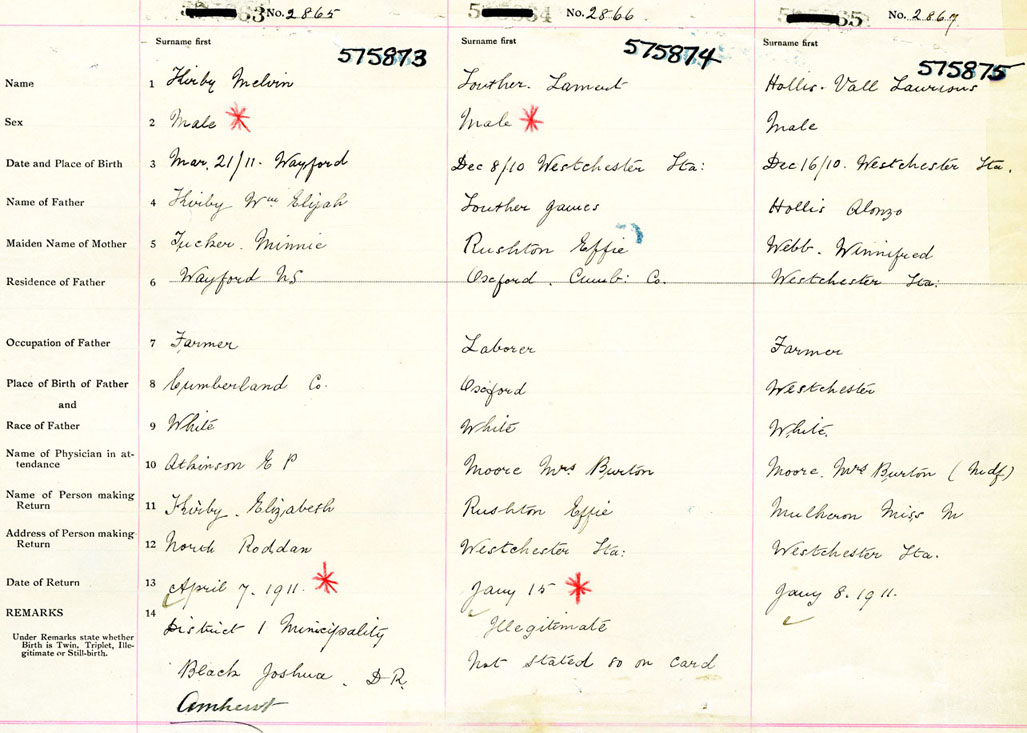 No. 2865 No. 2866 No. 2867
Surname first Surname first Surname first
575873 575874 575875
Name 1 Kirby Melvin Louther. Lament Hollis. Vall Lawrious
Sex 2 Male Male Male
Date and Place of Birth 3 Mar. 21/11. Wayford Dec 8/10 Westchester Sta: Dec 16/10. Westchester Sta.
Name of Father 4 Kirby Wm Elijah Louther James Hollis Alonzo
Maiden Name of Mother 5 Tucker. Minnie Rushton Effie Webb. Winnifred
Residence of Father 6 Wayford NS Oxford. Cumb: Co. Westchester Sta:
Occupation of Father 7 Farmer Laborer Farmer
Place of Birth of Father 8 Cumberland Co. Oxford Westchester
and
Race of Father 9 White White White.
Name of Physician in at-
tendance 10 Atkinson E P Moore Mrs Burton Moore. Mrs Burton (Mdf)
Name of Person making
Return 11 Kirby. Elizabeth Rushton Effie Mulheron Miss M
Address of Person making
Return 12 North Roddan Westchester Sta: Westchester Sta.
Date of Return 13 April 7. 1911. Jany 15 Jany 8. 1911.
REMARKS 14
District 1 Municipality Illegitimate
Under Remarks state whether
Birth is Twin, Triplet, Ille-
gitimate or Still-birth.
Black Joshua. D.R. Not stated so on card
Amherst